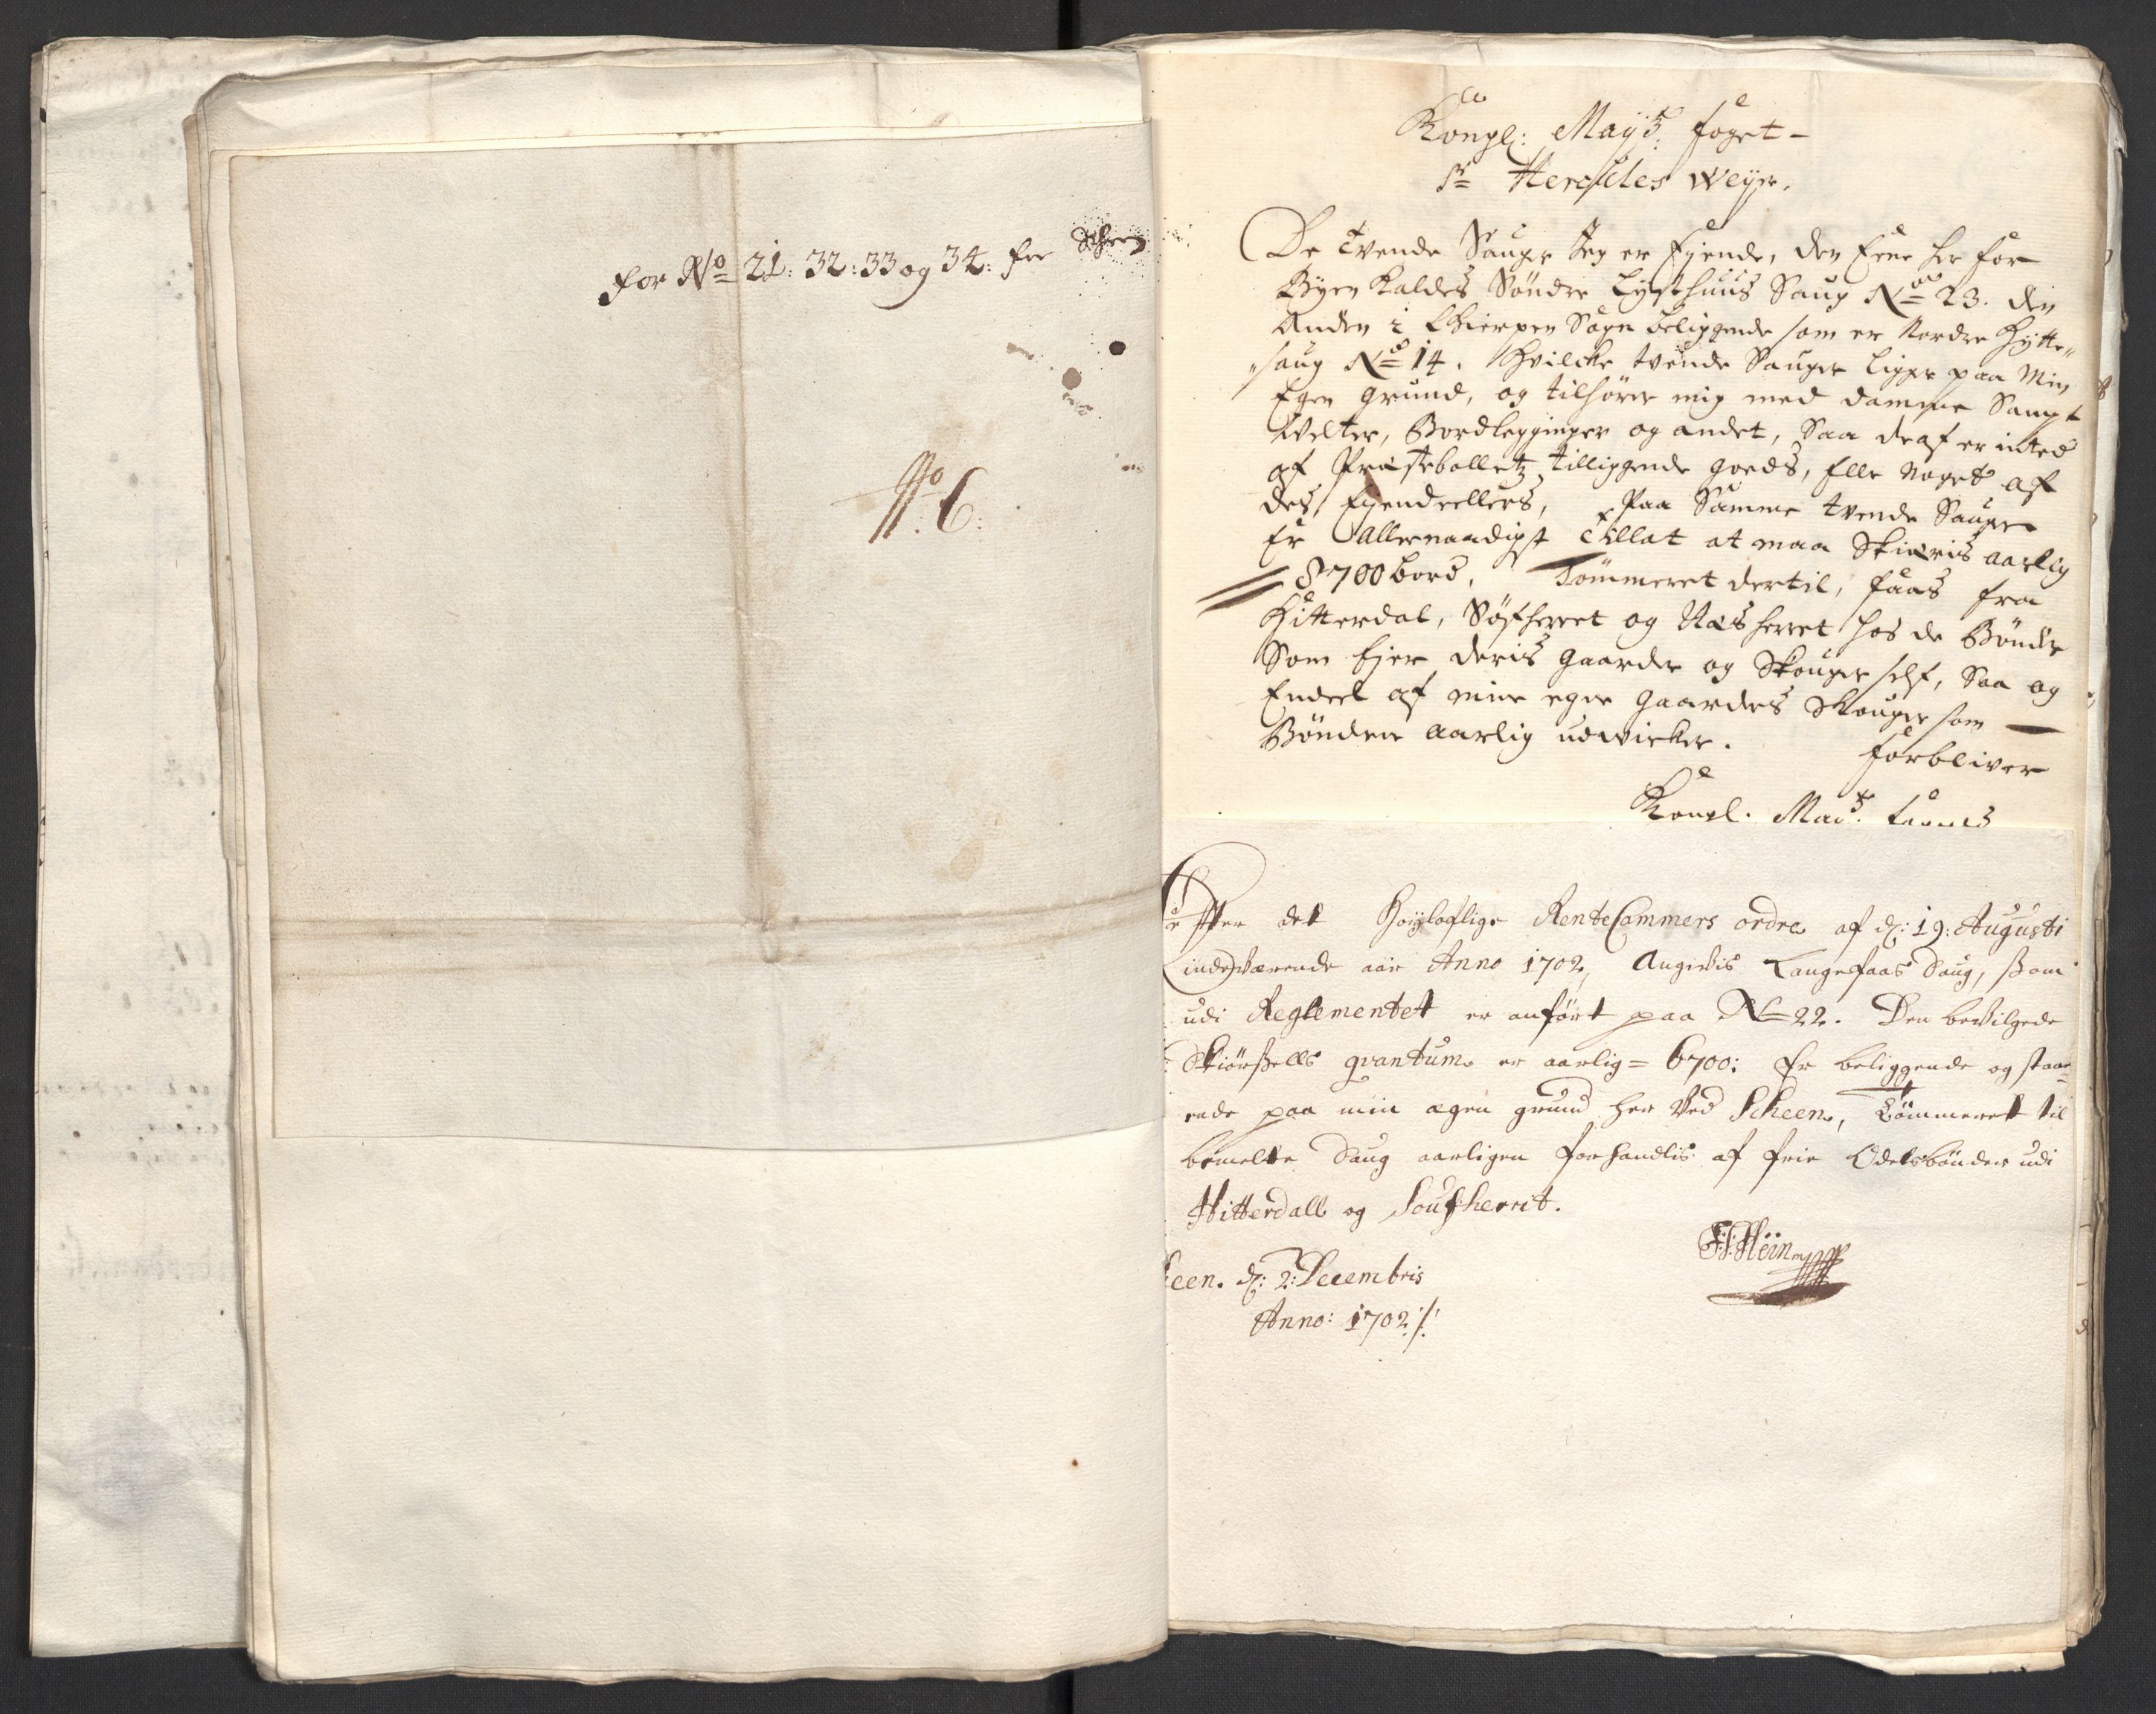 for No 21: 32: 33 og 34: for Scheen
No 6:
Kongl: Mayts: foget
Sr Hercules Weyer.
De Tvende Sauger Jeg er Ejende, den Eene her for
Byen Kaldes Söndre Lysthuus Saug No 23. den
Anden i Gierpen Sogn beliggende som er Nordre Hytte-
saug No 14. Hvilcke tvende Sauger ligger paa Min
Egen grund, og tilhörer mig med damme Sampt
Velter, Bordlegginger og andet, Saa deraf er inted
af Præstebolletz tilliggende goeds, Eller noget af
des Ejendeellers, Paa Samme tvende Sauger
Er Allernaadigst tillat at maa Skiæris aarlig
8700 bord, Tömmeret dertil, faaes fra
Hitterdal, Söfherret og Næsherret hos de Bönder
Som Ejer deris Gaarder og Skouger self, Saa og
Endeel af mine egne Gaarders Skouger som
Bönderne aarlig udvirker. forbliver
Kongl. Mayts.
Efter det Høyloflige RenteCammers ordre af d: 19: Augusti
indeværende aar Anno 1702, Angivis Langefaas Saug, som
udi Reglementet er anfört paa No 22. Den bevilgede
Skiörsells qvantum er aarlig = 6700: Er beliggende og staa-
ende paa min egen grund her ved Scheen, Tömmeret til
bemelte Saug aarligen forhandlis af frie Odelsbönder udi
Hitterdall og Soufherrit.
een. d: 2: Decembris
Anno: 1702 ./.